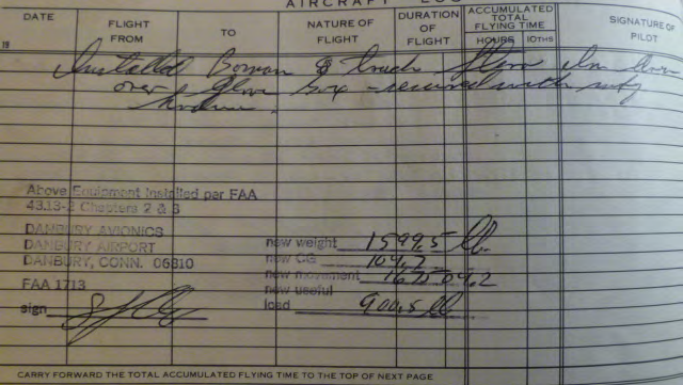 AIRCRAFT LOG
DATE FLIGHT FROM TO NATURE OF FLIGHT DURATION OF FLIGHT ACCUMULATED TOTAL FLYING TIME HOURS 10THS SIGNATURE OF PILOT
19
Installed Boman 8 track Stereo
over glove box - secured with
Above Equipment Installed per FAA
43.13-2 Chapters 2 & 3
DANBURY AVIONICS
DANBURY AIRPORT
DANBURY, CONN. 06810
FAA 1713
sign
new weight 1599.5 lb.
new CG 104.7
new movement
new useful
load 900.5 lb
CARRY FORWARD THE TOTAL ACCUMULATED FLYING TIME TO THE TOP OF NEXT PAGE